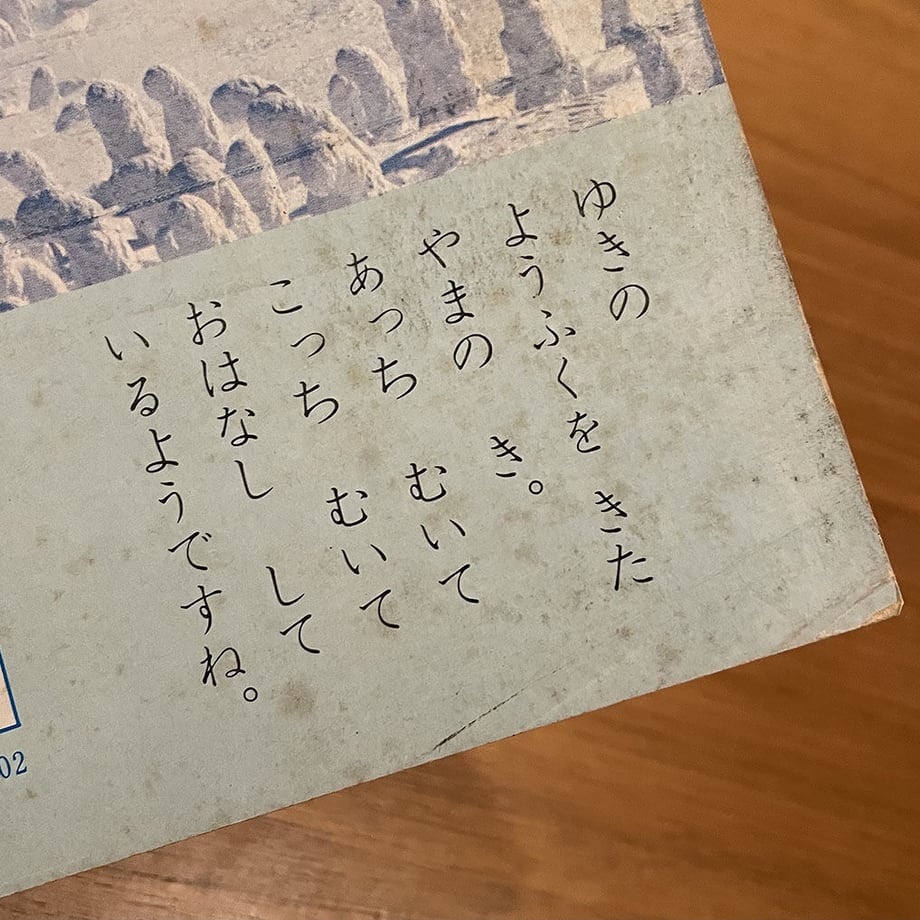 ゆきの
ようふくを きた
やまの き。
あっち むいて
こっち むいて
おはなし して
いるようですね。
02